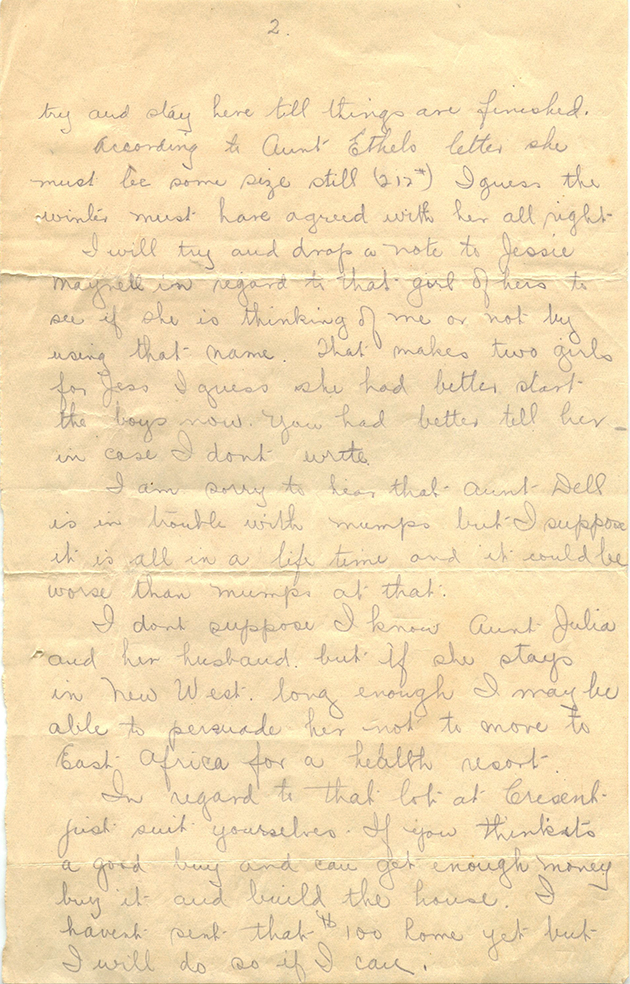 2.
try and stay here till things are finished.
According to Aunt Ethels letter she
must be some size still (212#) I guess the
winter must have agreed with her all right
I will try and drop a note to Jessie
in regard to that girl of hers to
see if she is thinking of me or not by
using that name. That makes two girls
for Jess I guess she had better start
the boys now. You had better tell her
in case I dont write
I am sorry to hear that Aunt Dell
is in trouble with mumps but I suppose
it is all in a life time and it could be
worse than mumps at that.
I dont suppose I know Aunt Julia
and her husband. but if she stays
in New West. long enough I may be
able to persuade her not to move to
East Africa for a health resort
In regard to that lot at Cresent
just suit yourselves. If you think its
a good buy and can get enough money
buy it and build the house. I
havent sent that $100 home yet but
I will do so if I can.